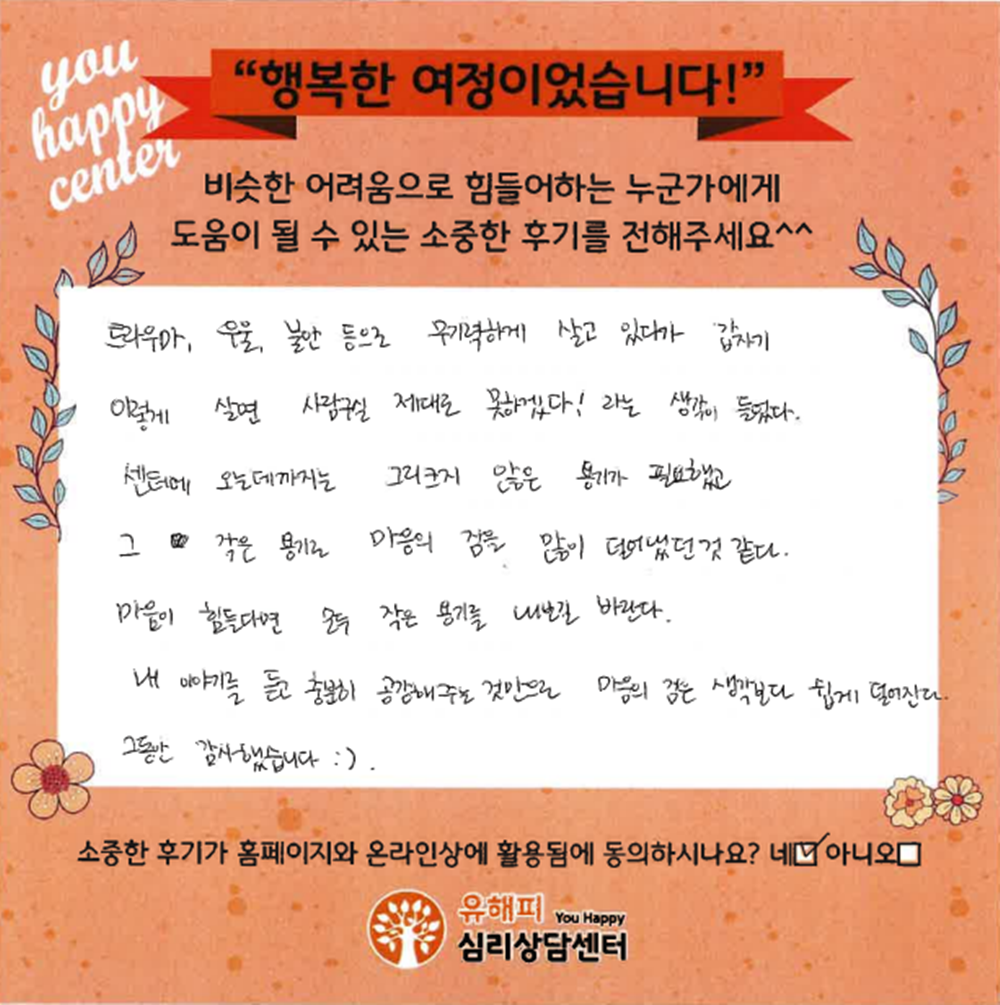 you
happy
center
“행복한 여정이었습니다!”
비슷한 어려움으로 힘들어하는 누군가에게
도움이 될 수 있는 소중한 후기를 전해주세요^^
트라우마, 우울, 불안 등으로 무기력하게 살고 있다가 갑자기
이렇게 살면 사람구실 제대로 못하겠다! 라는 생각이 들었다.
센터에 오는데까지는 그리 크지 않은 용기가 필요했고
그 작은 용기로 마음의 짐을 많이 덜어냈던 것 같다.
마음이 힘들다면 모두 작은 용기를 내보길 바란다.
내 이야기를 듣고 충분히 공감해주는 것만으로 마음의 짐은 생각보다 쉽게 덜어진다.
그동안 감사했습니다 :).
소중한 후기가 홈페이지와 온라인상에 활용됨에 동의하시나요? 네☑ 아니오☐
유해피 You Happy
심리상담센터